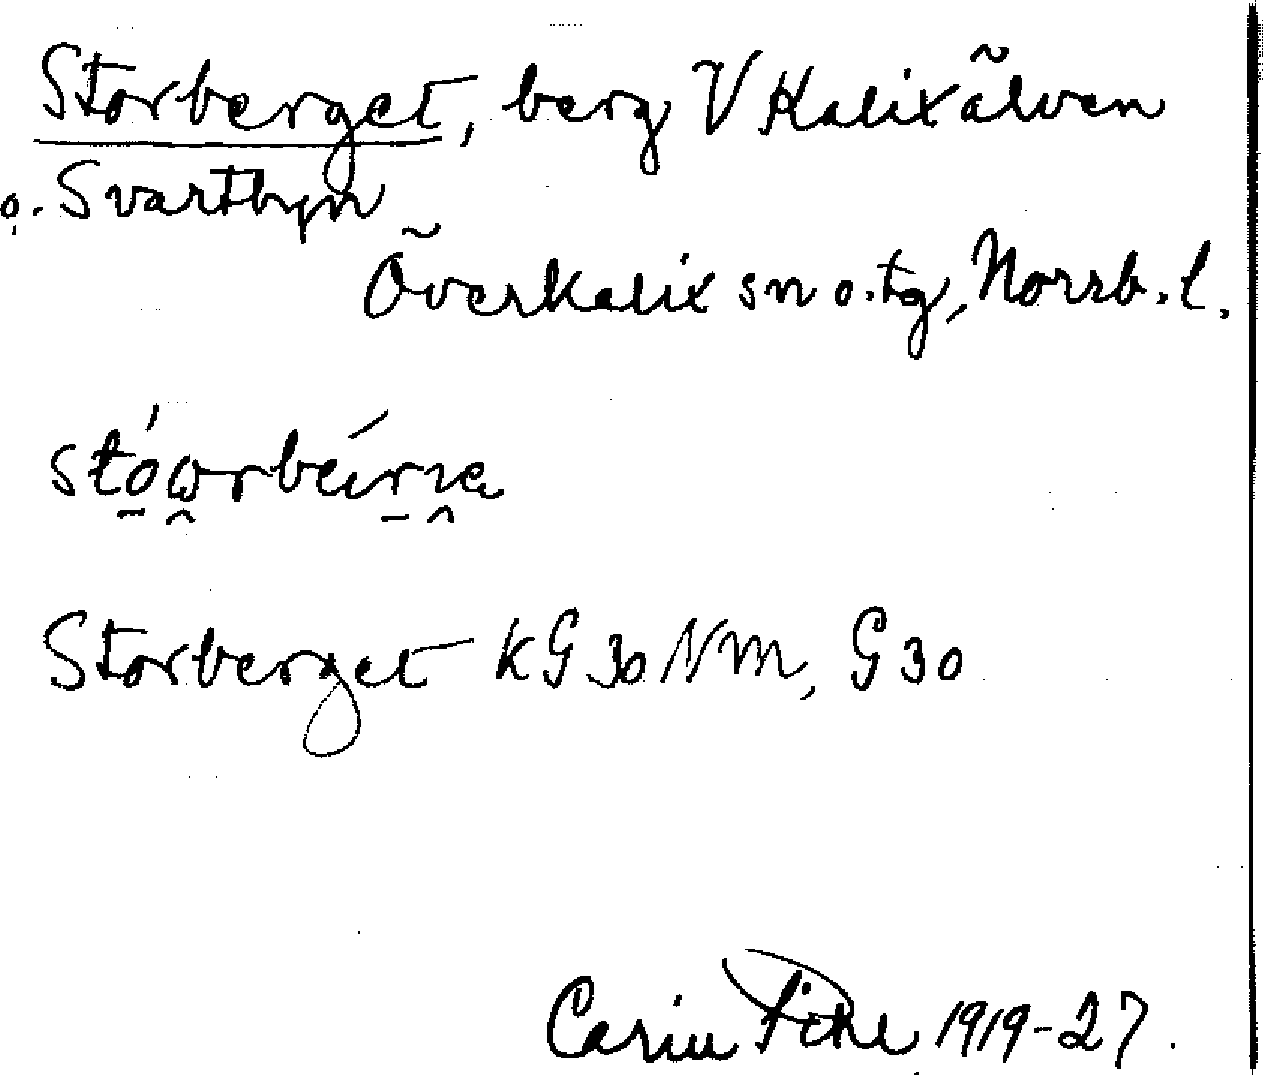 Storberget, berg V Kalixälven
o. Svartbyn
Överkalix sn o. tg, Norrb. l.
Storberget KG 30 NM, G 30
Carin Pihl 1919-27.